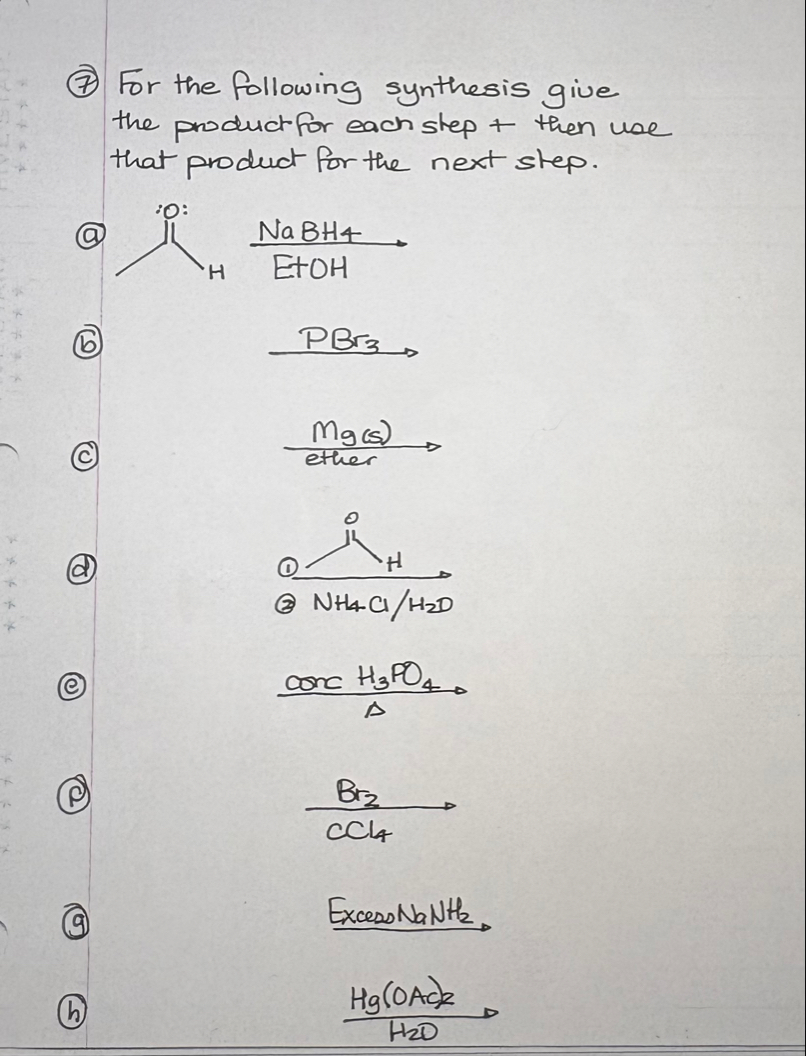 ⑦ For the following synthesis give
the product for each step + then use
that product for the next step.
:O:
ⓐ H NaBH4
EtOH
ⓑ PBr3
ⓒ Mg(s)
ether
O
ⓓ ① H
② NH4Cl/H2O
ⓔ conc H3PO4
Δ
ⓕ Br2
CCl4
ⓖ Excess NaNH2
ⓗ Hg(OAc)2
H2O